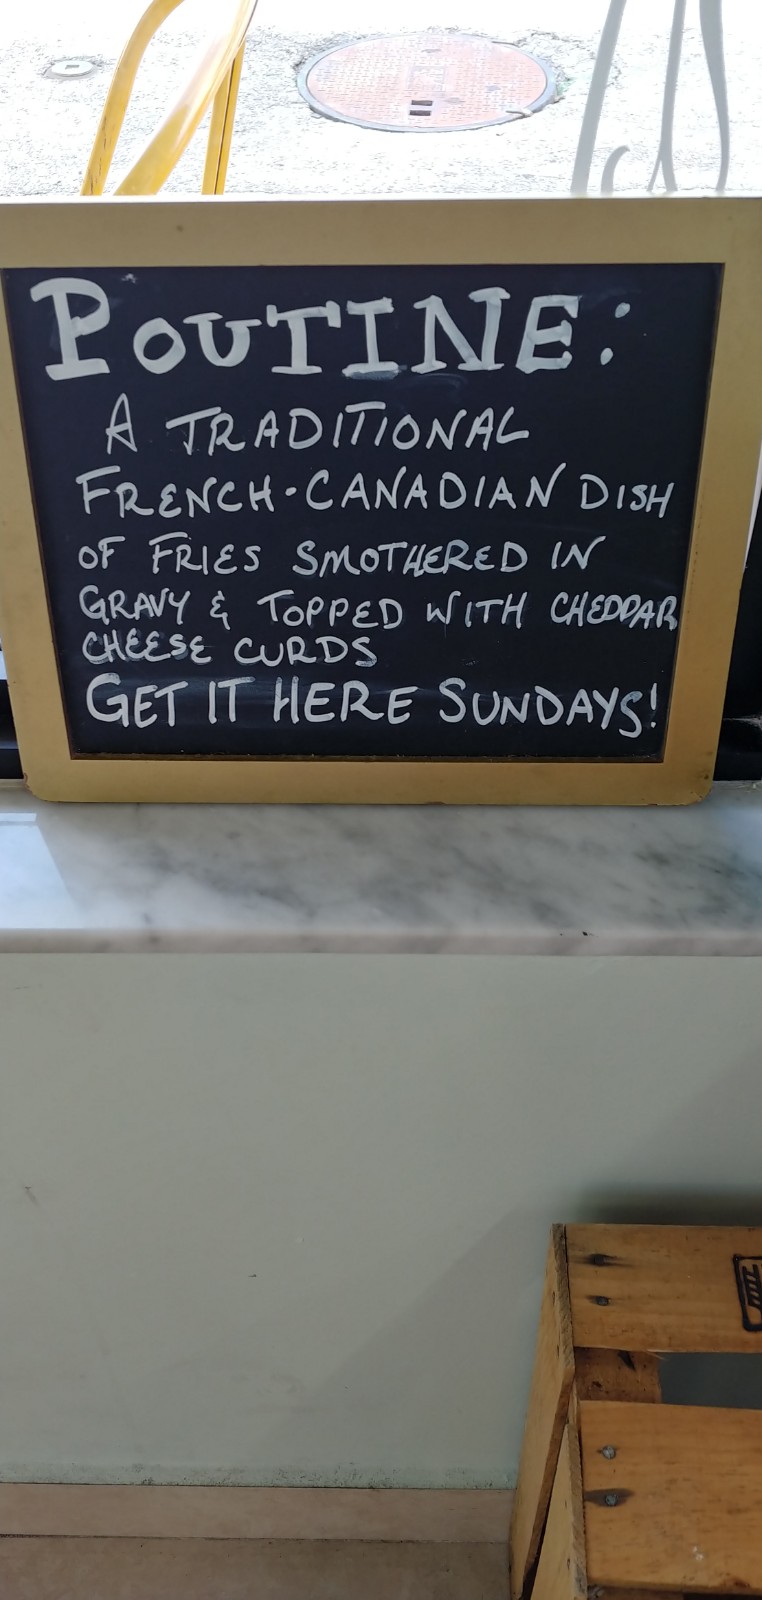 POUTINE:
A TRADITIONAL
FRENCH-CANADIAN DISH
OF FRIES SMOTHERED IN
GRAVY & TOPPED WITH CHEDDAR
CHEESE CURDS
GET IT HERE SUNDAYS!